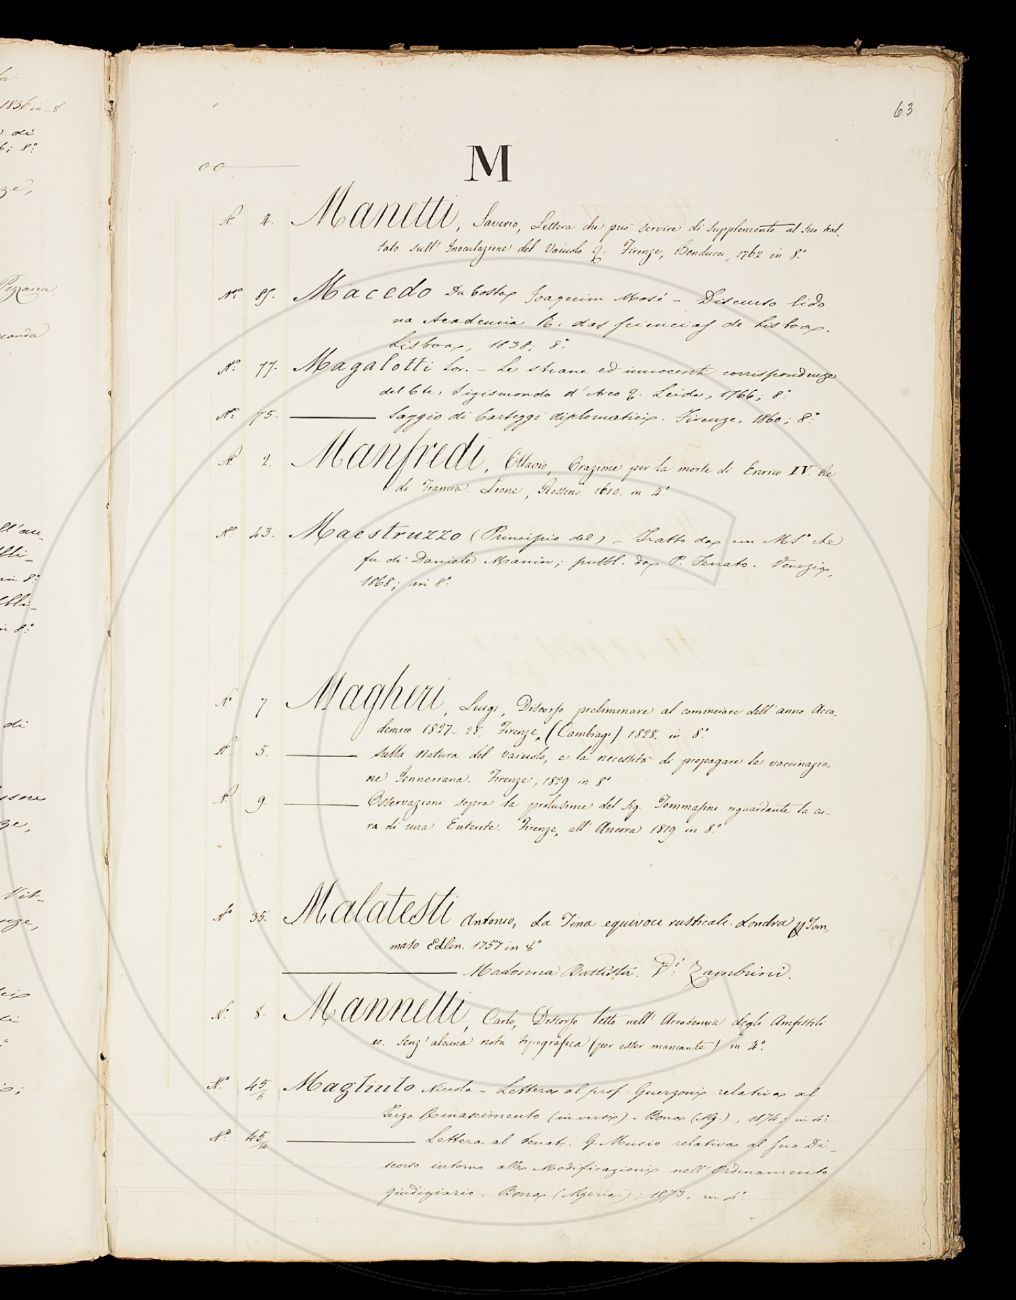 63
M
N° 4. Manetti, Saverio, Lettera che può servire di supplemento al suo trat-
tato sull' Inoculazione del Vaiuolo &. Firenze, Bonducci, 1762 in 8.°
N.° 85. Macedo Da Costa Joaquim José – Discurso lido
na Academia R. das sciencias de Lisboa.
Lisboa, 1838; 8.°
N.° 77. Magalotti Lor. – Le strane ed innocenti corrispondenze
del Cte. Sigismondo d'Arco &. Leida, 1766; 8.°
N.° 75. Saggio di Carteggi diplomatici. Firenze, 1860; 8.°
N° 2. Manfredi, Ottavio, Orazione per la morte di Enrico IV. Re
di Francia. Lione, 1610. in 4°
N.° 43. Maestruzzo (Principio del) – Tratto da un MS.° che
fu di Daniele Manin; pubbl. da P. Ferrato. Venezia,
1868; in 8.°
N.° 7. Magheri, Luigi, Discorso preliminare al cominciare dell'anno Acca-
demico 1827–28. Firenze, (Cambiagi) 1828. in 8.°
N.° 5. Sulla natura del vaiuolo, e la necessità di propagare la vaccinazio-
ne Jenneriana. Firenze, 1829 in 8°
N.° 9 Osservazioni sopra la prolusione del Sig. Tommasini riguardante la cu-
ra di una Enterite. Firenze, all' Ancora 1819 in 8.°
N.° 35. Malatesti Antonio, La Tina equivoci rusticali. Londra Tom
maso Edlin. 1757 in 8.°
Madonna Battista. V.i Zambrini.
N.° 8. Mannetti, Carlo, Discorso letto nell' Accademia degli
ec. senz' alcuna nota tipografica (per esser mancante) in 4.°
N.° 45/6 Magliulo Nicola – Lettera al prof. Guerzoni relativa al
Terzo Rinascimento (in versi). Bona (Alg.), 1874; in 4.°
N.° 45 Lettera al Senat. G. Musio relativa al suo Di-
scorso intorno alle Modificazioni nell' Ordinamento
giudiziario. Bona (Algeria); 1873; in 4.°